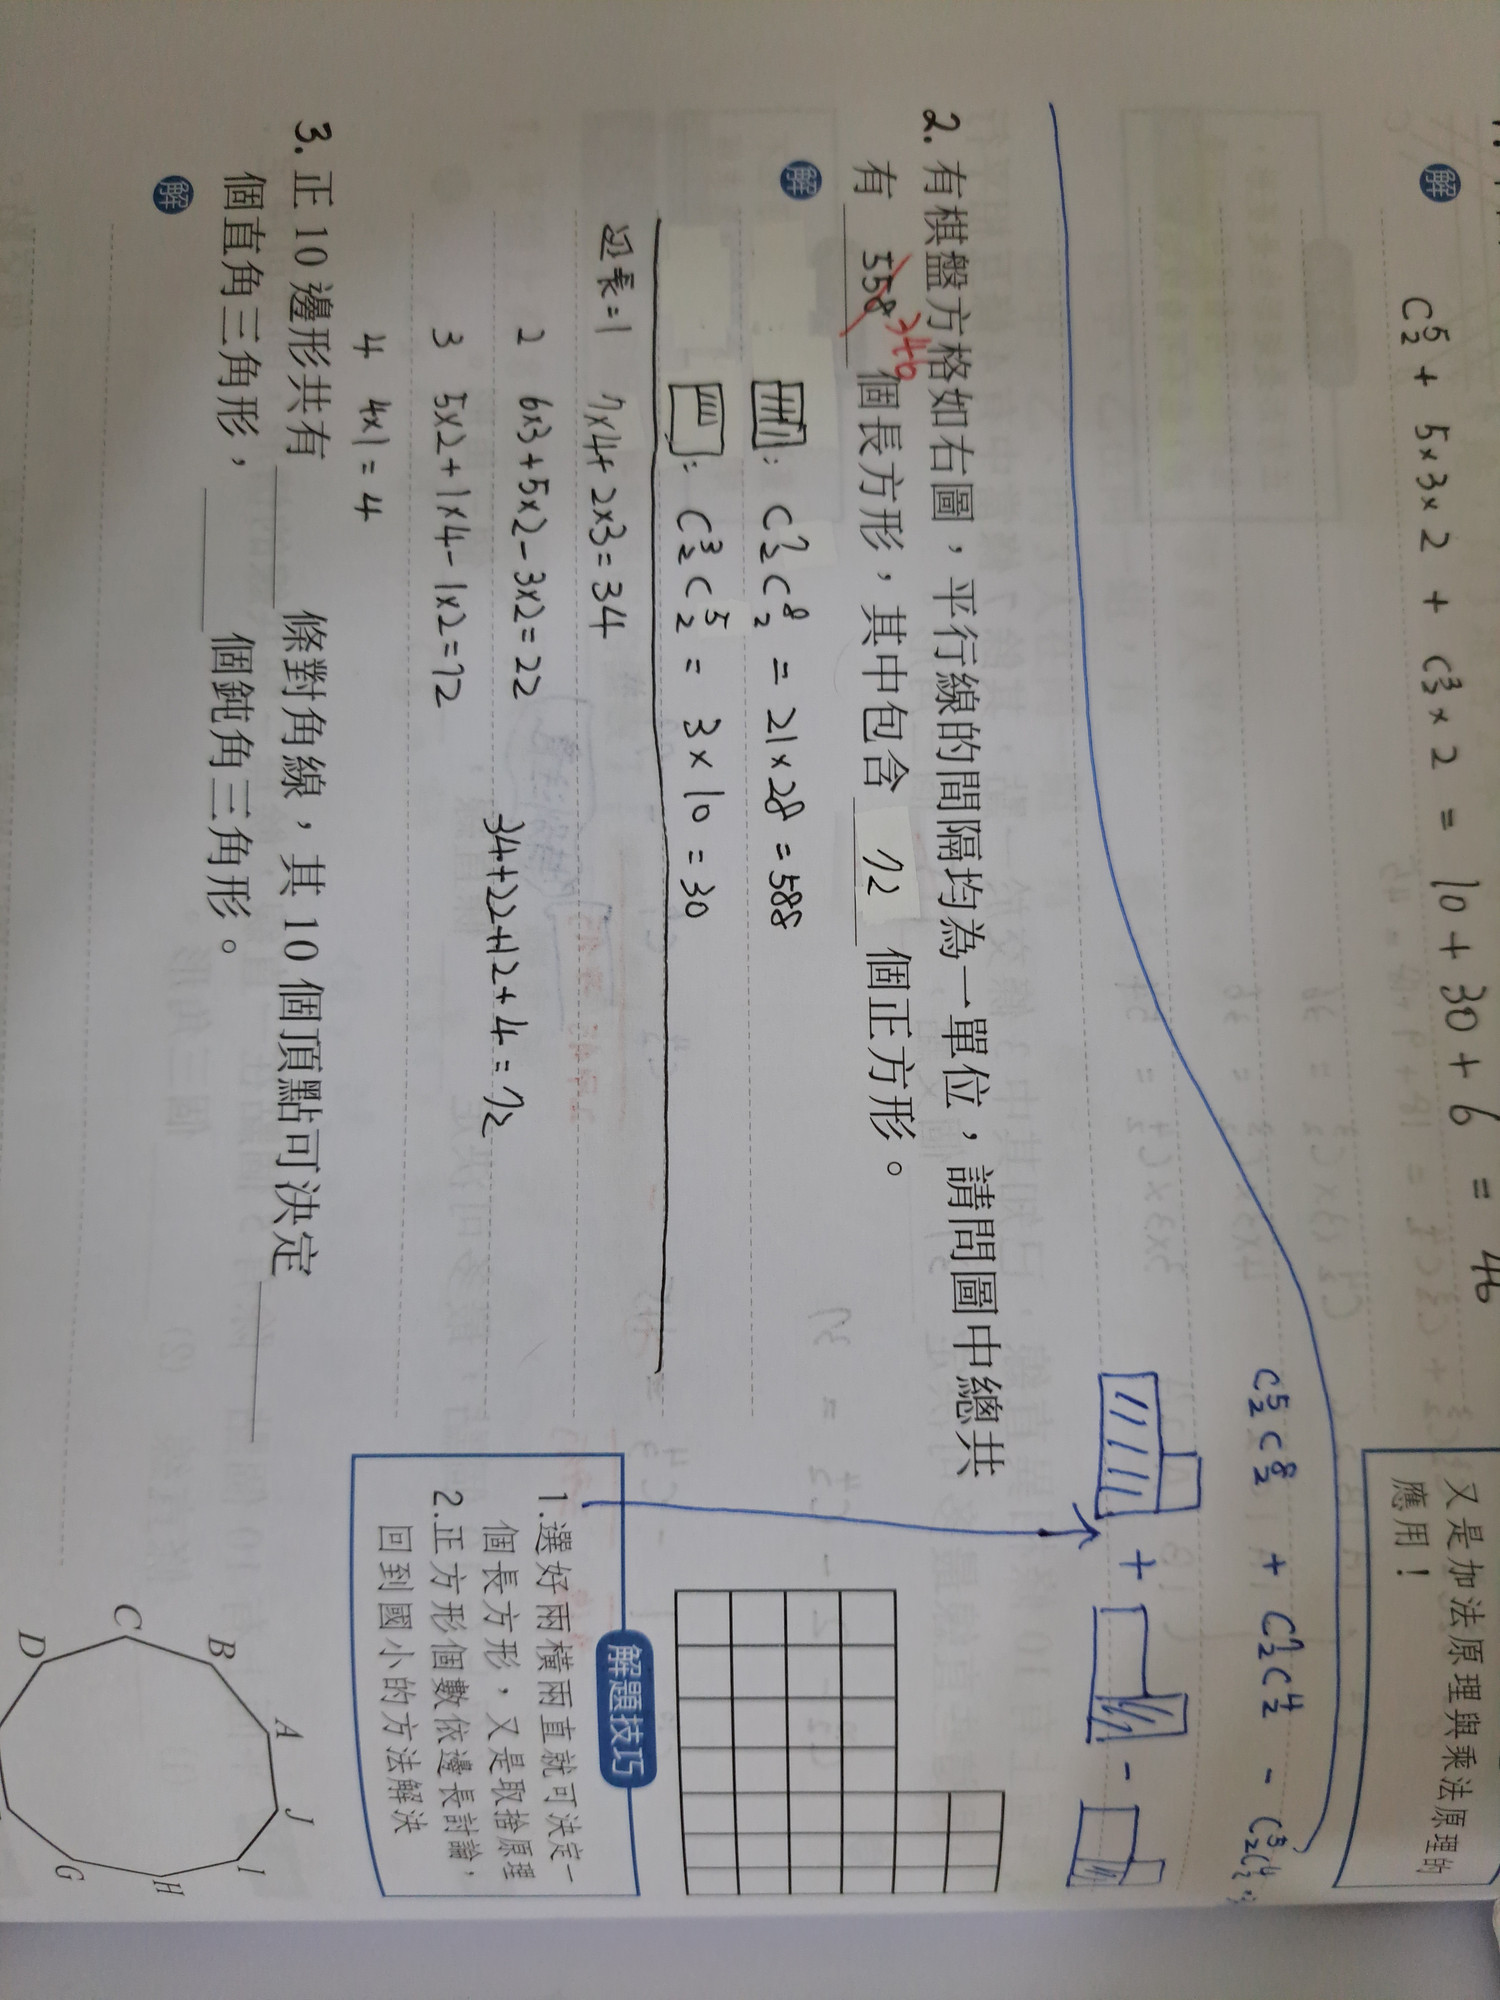 解
C⁵₂ + 5×3×2 + C³₂×2 = 10+30+6 = 46
又是加法原理與乘法原理的
應用！
C⁵₂C⁸₂ + C⁷₂C⁴₂ -
+ -
2. 有棋盤方格如右圖，平行線的間隔均為一單位，請問圖中總共
有 558 346 個長方形，其中包含 72 個正方形。
解
: C⁷₂C⁸₂ = 21×28 = 588
: C³₂C⁵₂ = 3×10 = 30
边長=1 7×4+2×3=34
2 6×3+5×2-3×2=22
3 5×2+1×4-1×2=12
34+22+12+4=72
4 4×1=4
解題技巧
1.選好兩橫兩直就可決定一
個長方形，又是取捨原理
2.正方形個數依邊長討論，
回到國小的方法解決
3. 正 10 邊形共有 條對角線，其 10 個頂點可決定
個直角三角形， 個鈍角三角形。
解
A
B
C
D
G
H
I
J